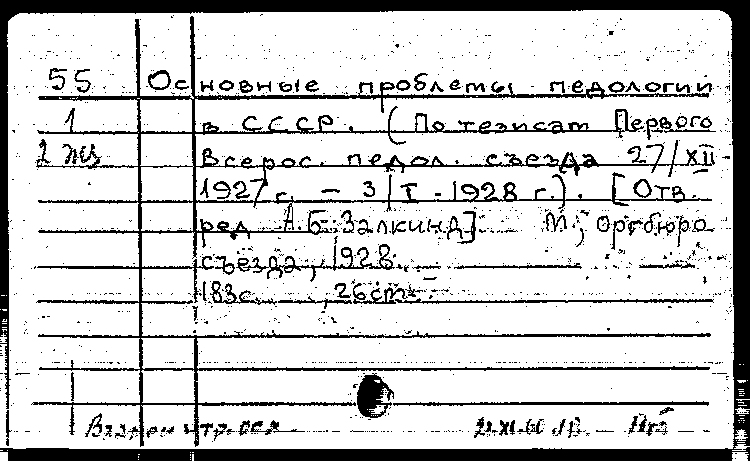 55 Основные проблемы педологии
1 в СССР. (По тезисам Первого
2 экз Всерос. педол. съезда 27/XII
1927 г. – 3/I - 1928 г.). [Отв.
ред А.Б. Залкинд]. М., Оргбюро
съезда, 1928.
183с. , 26cm.
Взамен утр.